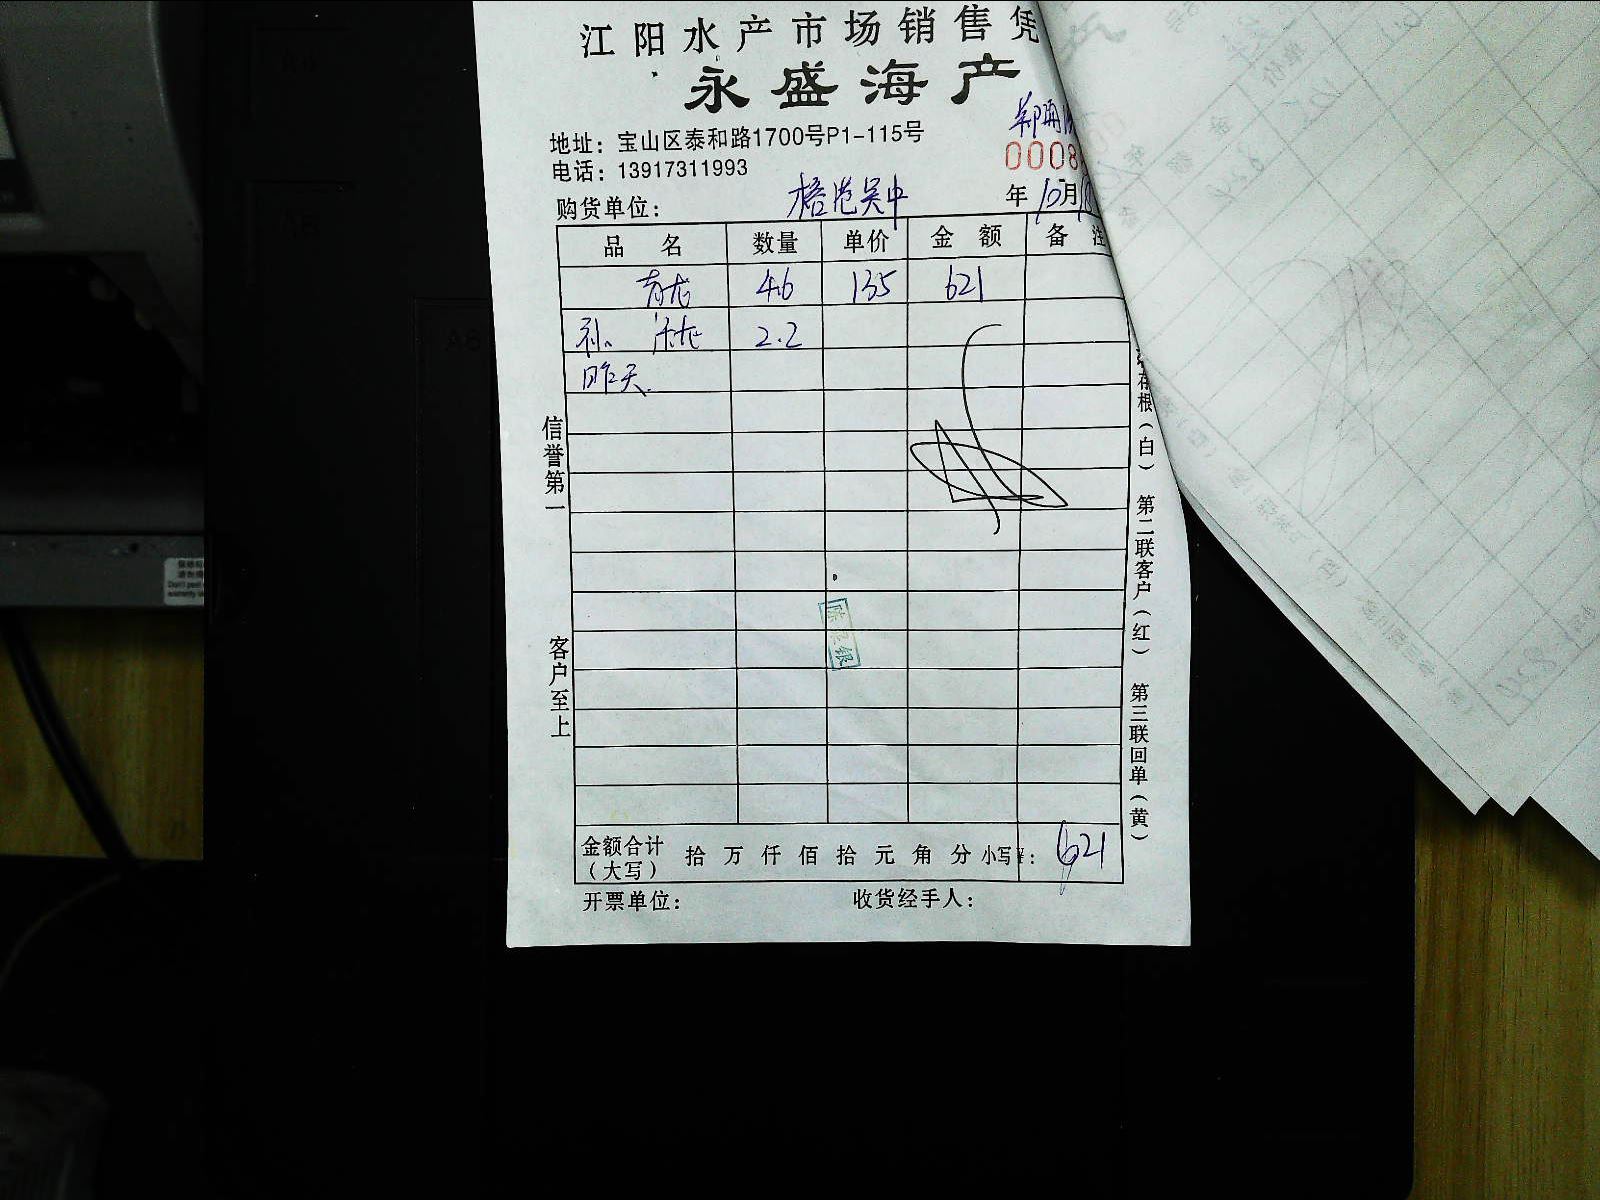 江阳水产市场销售凭
永盛海产
地址：宝山区泰和路1700号P1-115号
电话：13917311993
0008
购货单位：
年 10月
品 名 数量 单价 金 额 备 注
青龙 4.6 135 621
补 青龙 2.2
昨天.
信誉第一
客户至上
存根（白） 第二联客户（红） 第三联回单（黄）
金额合计（大写） 拾 万 仟 佰 拾 元 角 分 小写¥： 621
开票单位： 收货经手人：